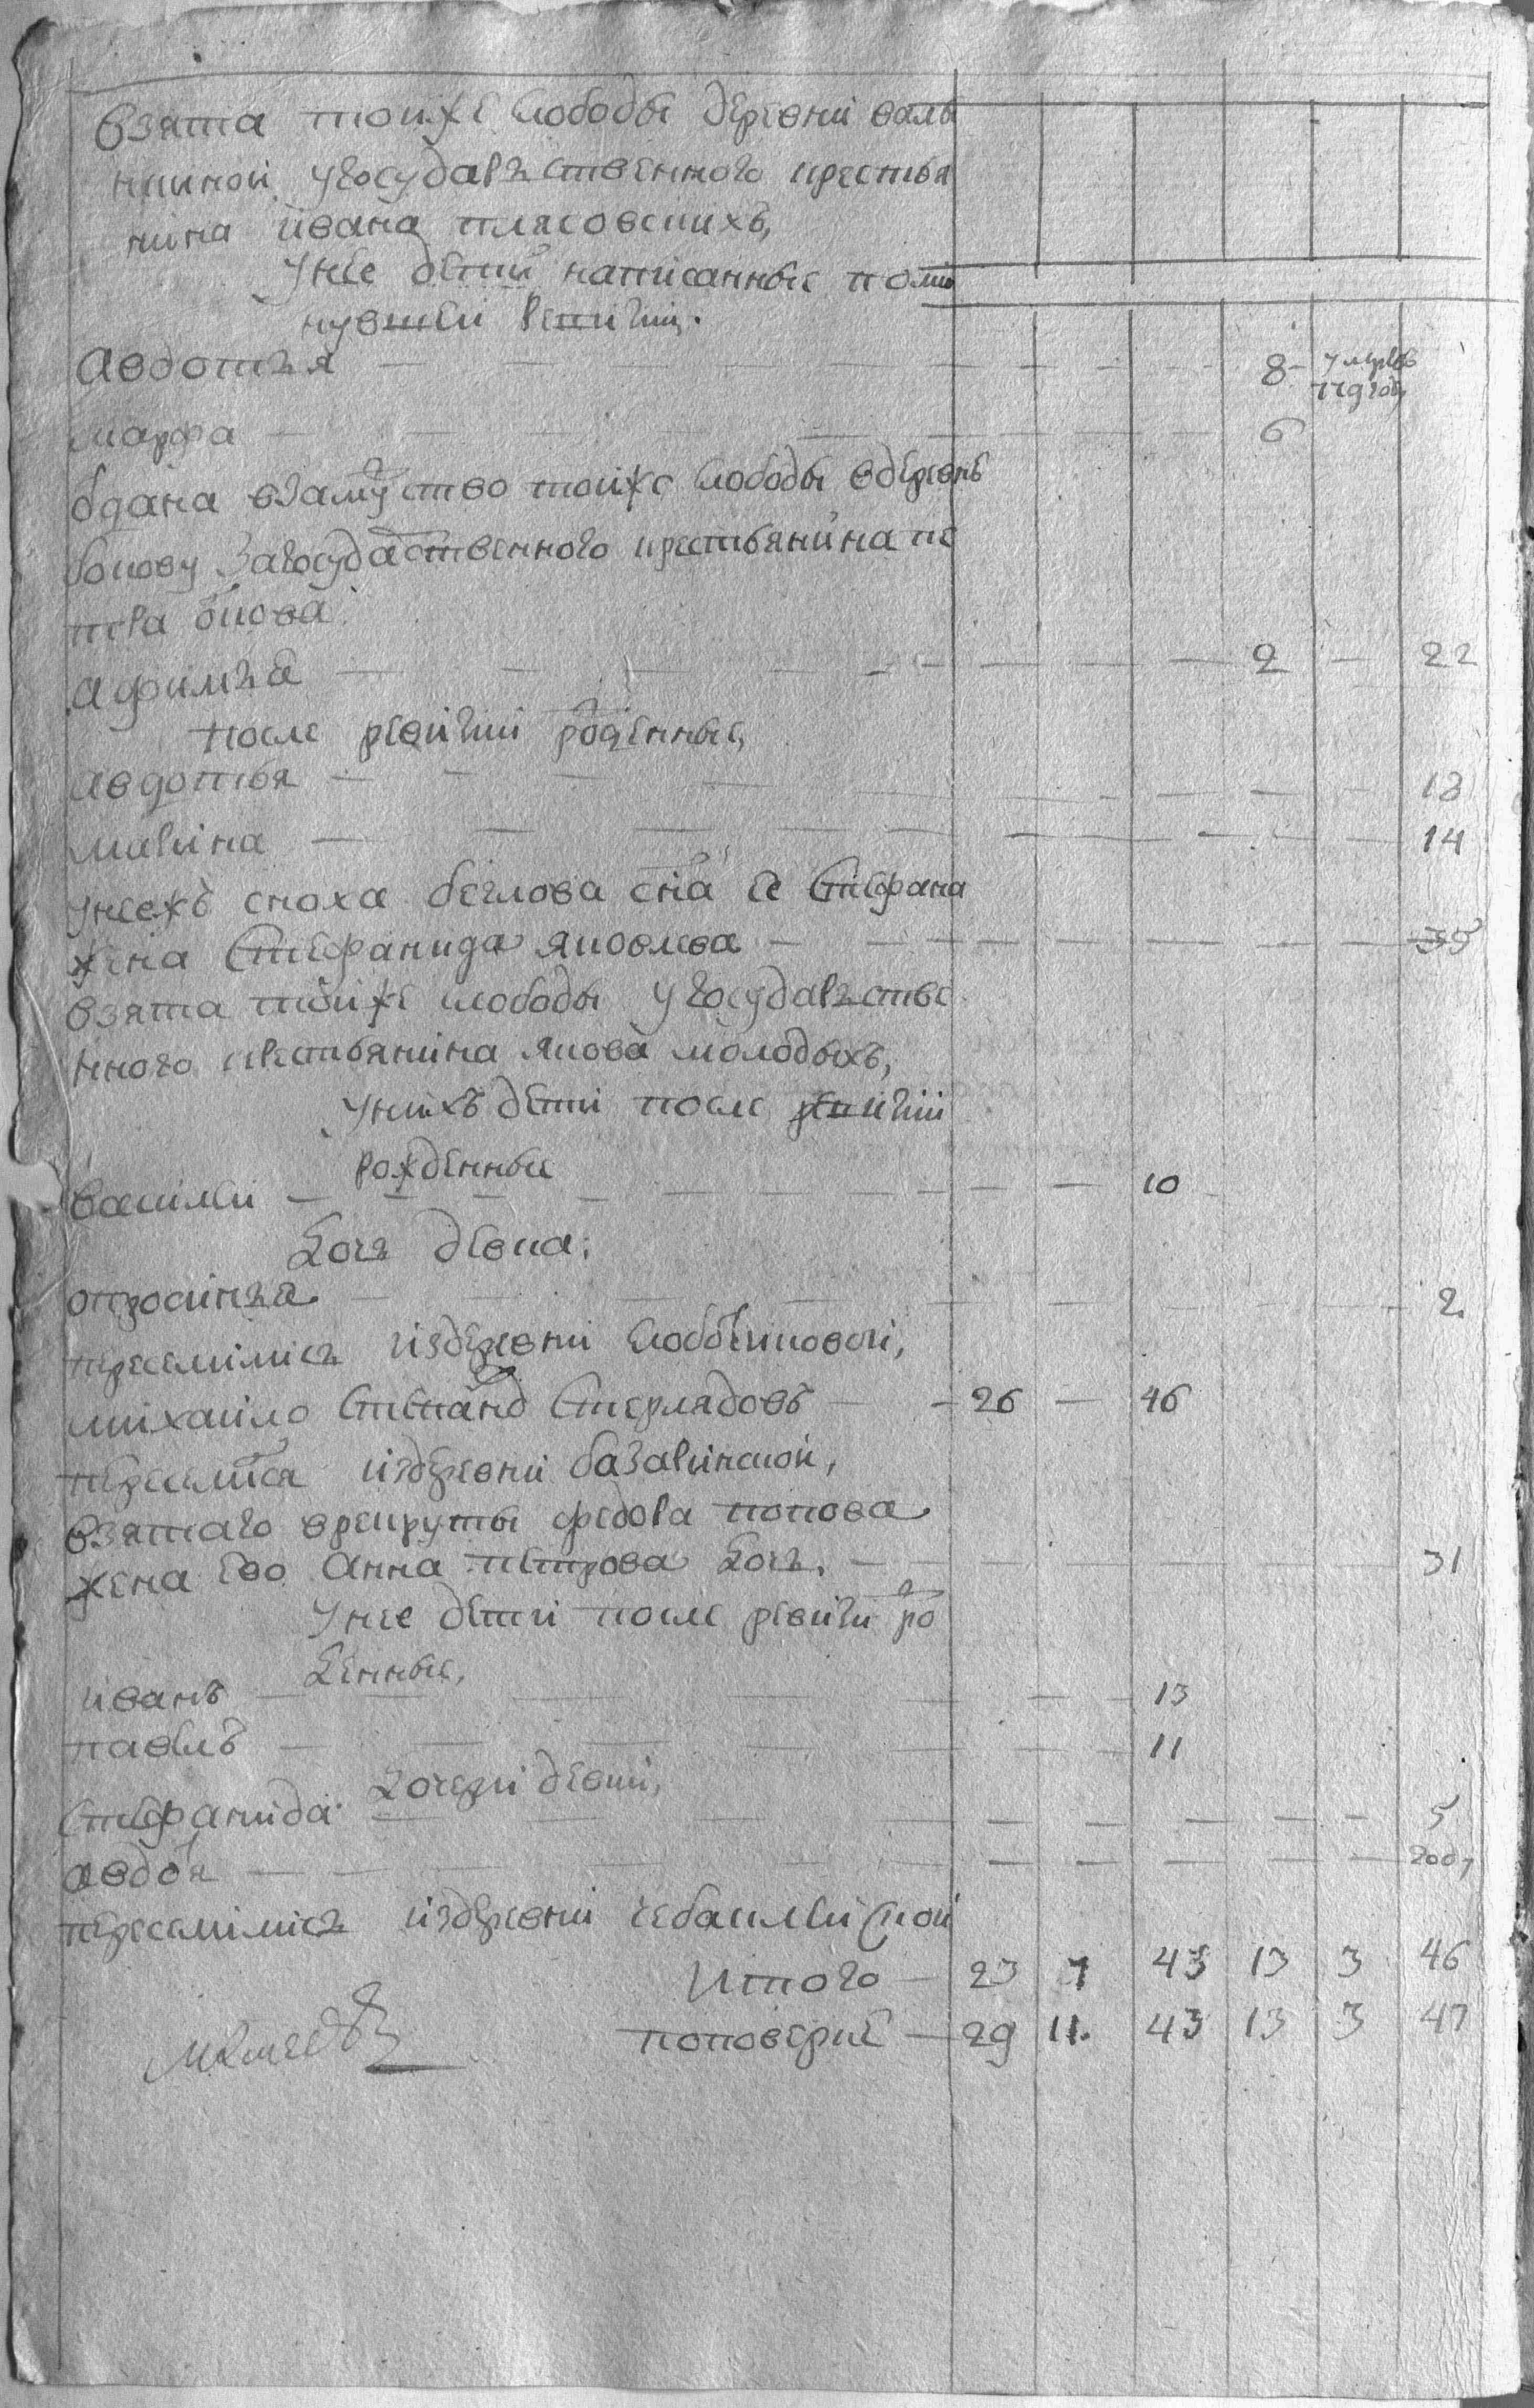 взята тойже слободы деревни валы
нкиной угосударъственного крестья
нина ивана плясовскихъ,
унее детей написанные поми
нувшей ревизии.
авдотья — 8 — умре в
779 году
марфа — 6
одана взамуство тойже слободы вдеревнѣ
бокову загосударственного крестьянина пе
тра бокова
афимъа — 2 — 22
после ревизии рожденные,
авдотья — 18
марина — 14
унееже сноха беглова сна ее стефана
жена стефанида яковлева — 35
взята тойже слободы угосударъстве
нного крестьянина якова молодыхъ,
унихъ дети после ревизии
рожденные
василей — 10
дочя девка:
опросинъа — 2
переселилися издеревни
михайло степанов стерлядовъ — 26 — 46
переселился издеревни базаринской,
взятаго врекруты федора попова
жена ево анна петрова дочь, — 31
унее дети после ревизии ро
жденные,
иванъ — 13
павелъ — 11
дочери девки,
стефанида — 5
авдотья — году
переселилися издеревни
итого — 23 7 43 13 3 46
поповерке — 29 11. 43 13 3 47